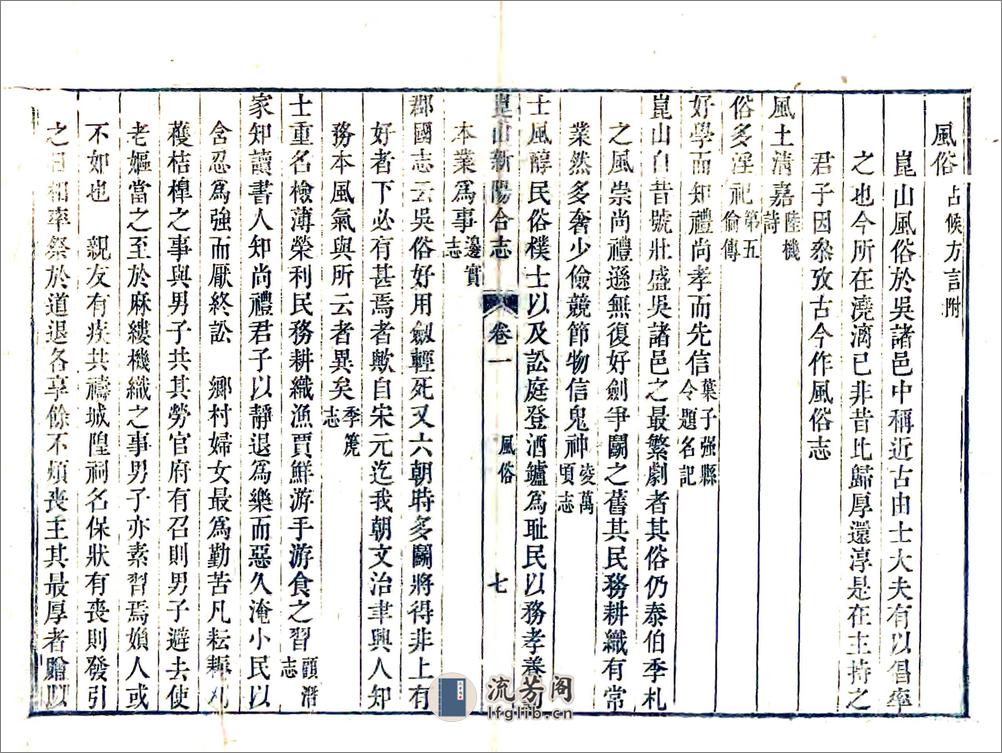 風俗占候方言附
崑山風俗於吳諸邑中稱近古由士大夫有以倡率
之也今所在澆漓已非昔比歸厚還淳是在主持之
君子因叅攷古今作風俗志
風土清嘉陸機詩
俗多淫祀第五倫傳
好學而知禮尚孝而先信葉子强縣令題名記
崑山自昔號壯盛吳諸邑之最繁劇者其俗仍泰伯季札
之風崇尚禮遜無復好劍爭鬭之舊其民務耕織有常
業然多奢少儉競節物信鬼神凌萬頃志
士風醇民俗樸士以及訟庭登酒鑪爲耻民以務孝養
本業爲事邊實志
崑山新陽合志 卷一 風俗 七
郡國志云吳俗好用劔輕死又六朝時多鬭將得非上有
好者下必有甚焉者歟自宋元迄我朝文治聿興人知
務本風氣與所云者異矣季箎志
士重名檢薄榮利民務耕織漁賈鮮游手游食之習顧潛志
家知讀書人知尚禮君子以靜退爲樂而惡久淹小民以
含忍爲強而厭終訟 鄉村婦女最爲勤苦凡耘耨刈
穫桔槹之事與男子共其勞官府有召則男子避去使
老嫗當之至於麻縷機織之事男子亦素習焉嬾人或
不如也 親友有疾共禱城隍祠名保狀有喪則發引
之日相率祭於道退各享餘不煩喪主其最厚者賻以
流芳阁
lfglib.cn